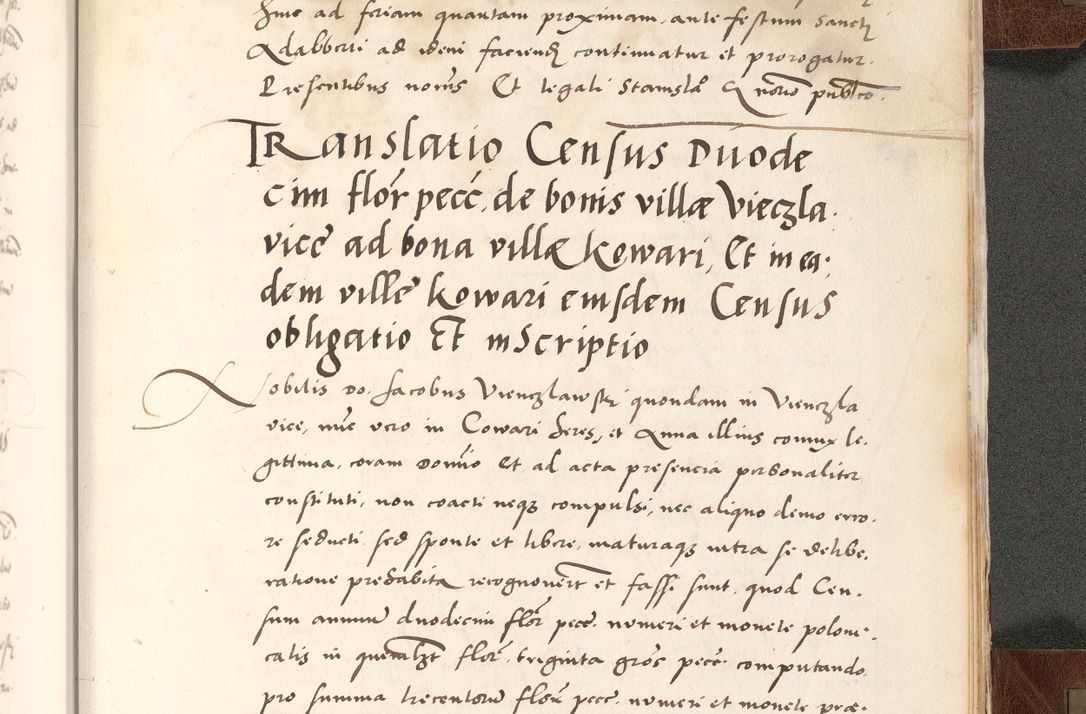 hinc ad feriam quartam proximam ante festum Sancti
Adalberti ad idem faciend continuatur et prorogatur.
Presentibus notariis Et legali Stanislao Q notario publico.
TRanslatio Census Duode
cim flor pecc. de bonis villæ Vieczla
vicc ad bona villæ Kowari, Et in ea
dem villę Kowari eiusdem Census
obligatio Et inscriptio
Nobilis Do. Jacobus Vienczlawski quondam in Vienczla
vice, nunc vero in Cowari heres, et Anna illius coniux le,
gittima, coram Domino Et ad acta presencia personaliter
constituti, non coacti neque compulsi, nec aliquo demo erro,
re seducti, sed sponte et libere, maturaque intra se delibe,
ratione prehabita recognoverunt et fassi sunt, quod Cen,
sum annuum duodecim flor pecc. numeri et monete poloni,
calis in quemlibet flor. triginta gros pecc. computando,
pro summa trecentorum flor pecc. numeri et monete præ,